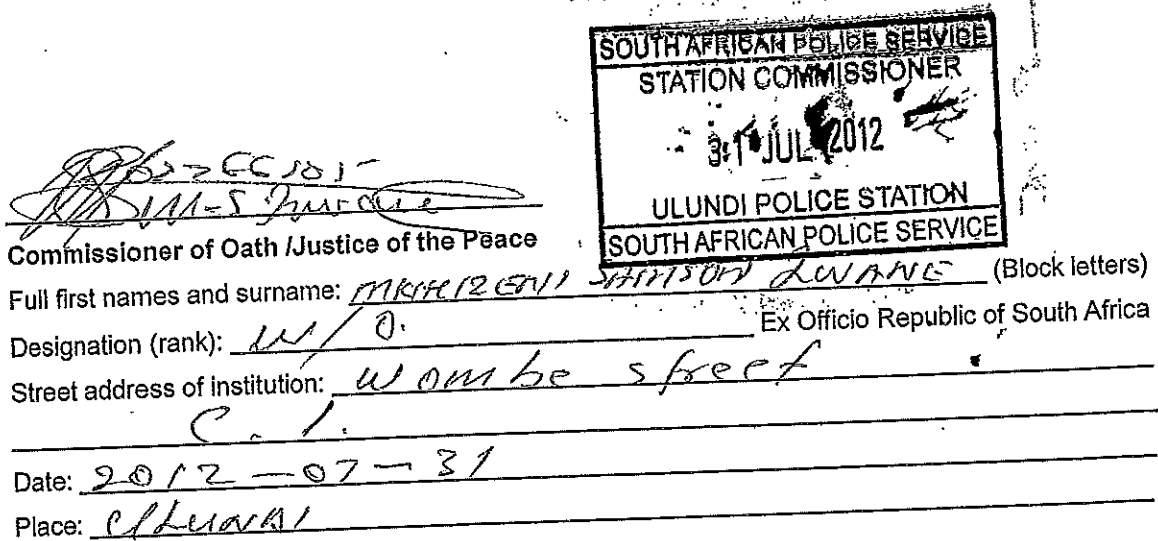 SOUTH AFRICAN POLICE SERVICE
STATION COMMISSIONER
31 JUL 2012
ULUNDI POLICE STATION
SOUTH AFRICAN POLICE SERVICE
M-S
Commissioner of Oath /Justice of the Peace
Full first names and surname: SAMSON (Block letters)
Designation (rank): W/O. Ex Officio Republic of South Africa
Street address of institution: Wombe street
C. 1.
Date: 2012-07-31
Place: ULUNDI